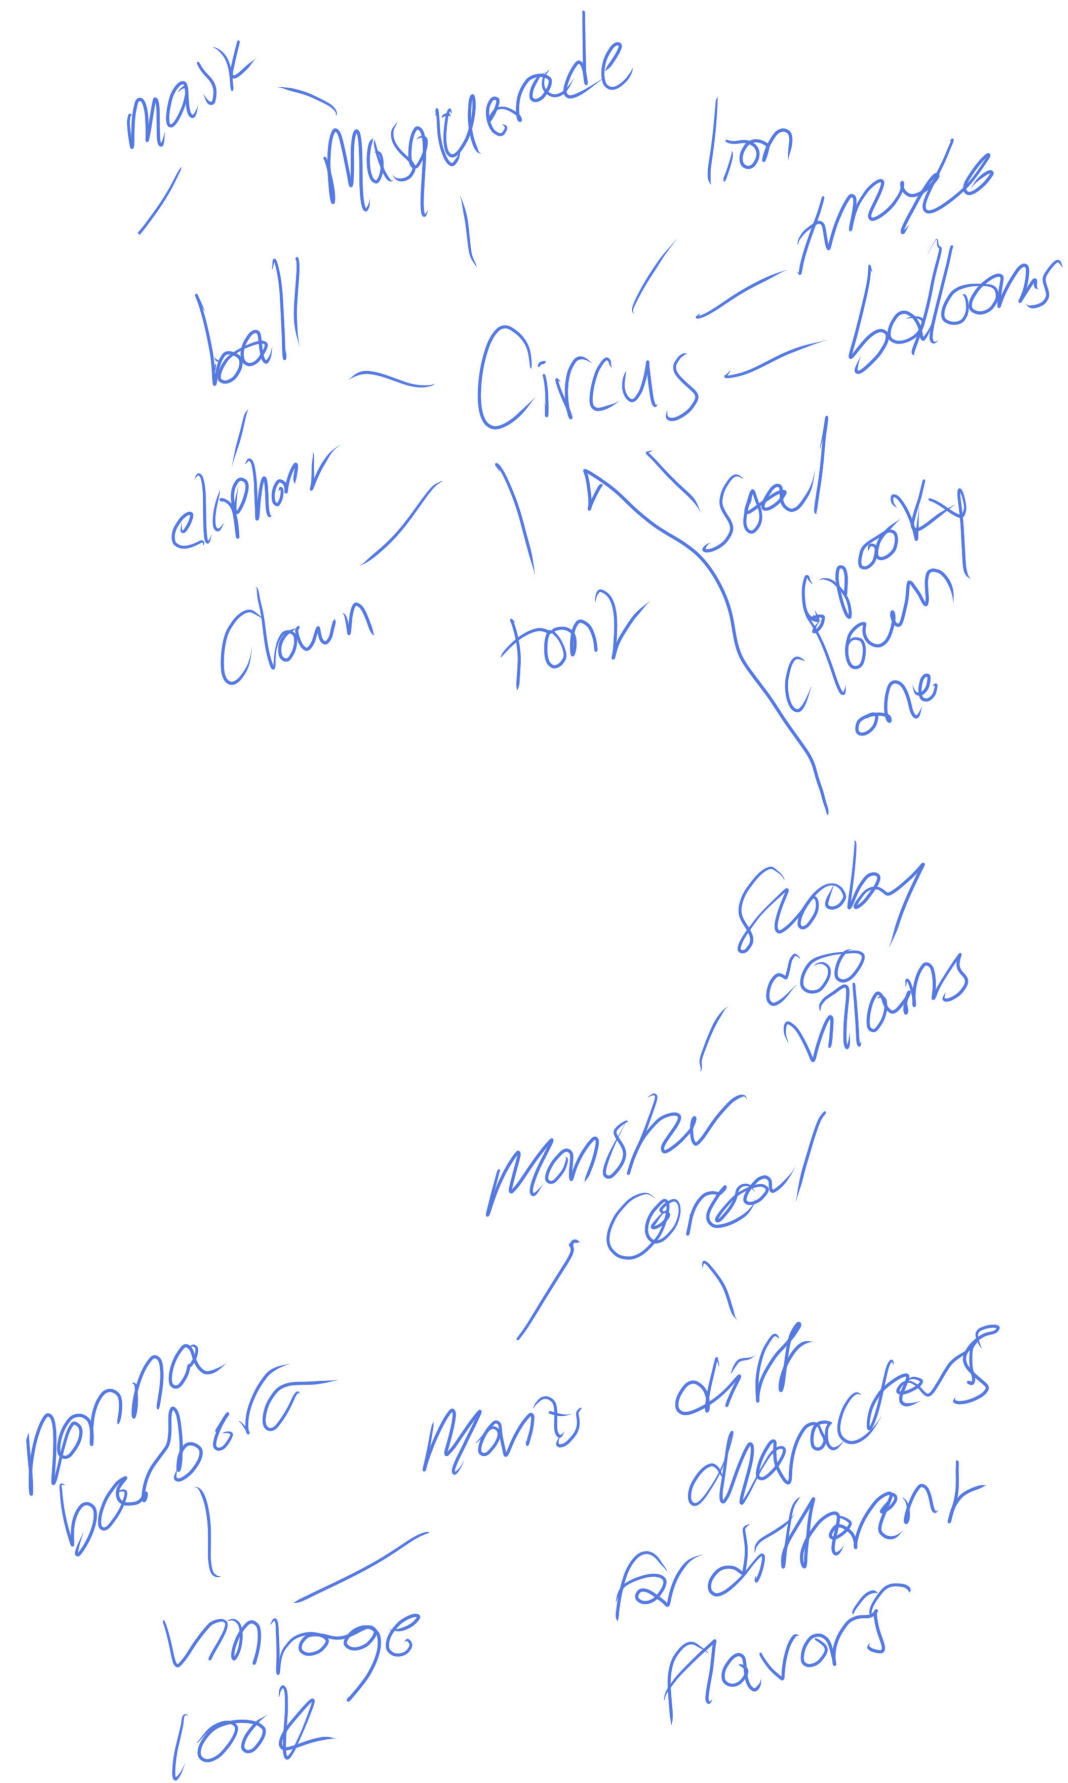 mask
Masquerade
lion
tricycle
balloons
ball
Circus
elephant
seal
spooky
clown
one
clown
tent
Scooby
doo
villains
Monster
Cereal
hanna
barbera
diff
characters
for different
flavors
vintage
look